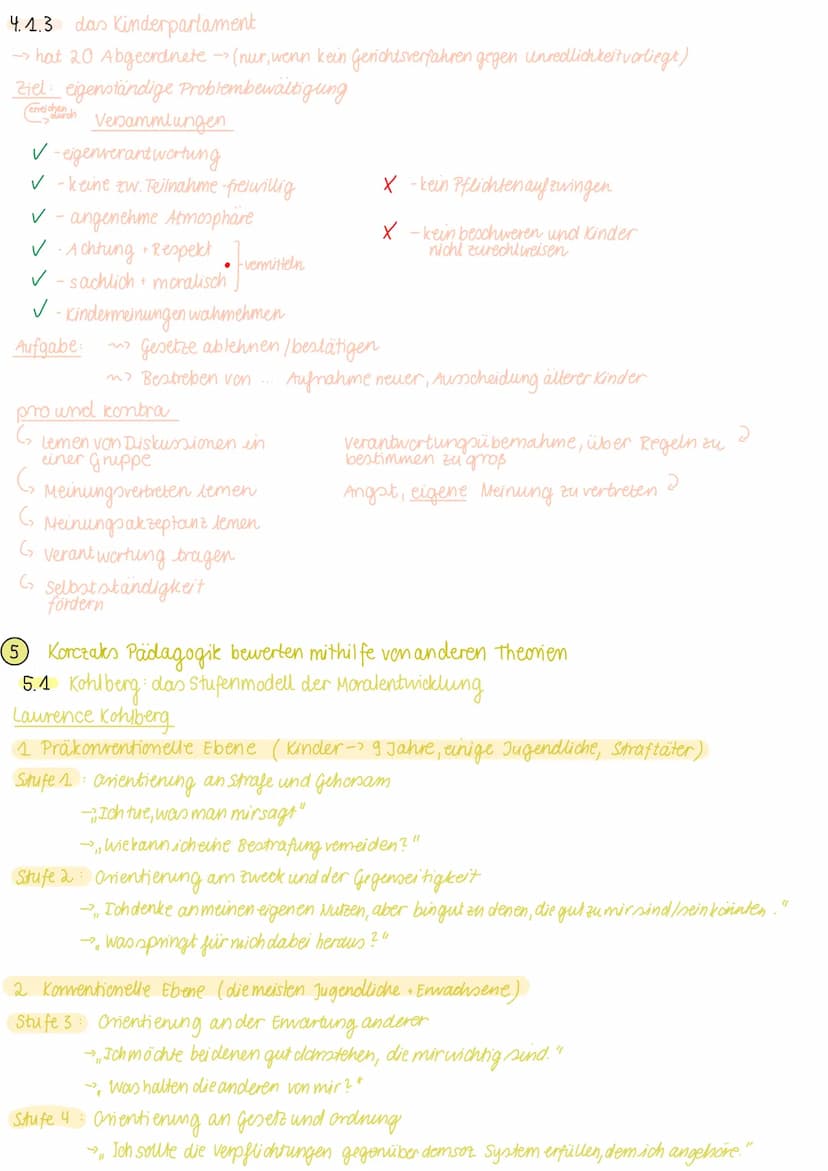 4.1.3 das Kinderparlament
→ hat 20 Abgeordnete → (nur, wenn kein Gerichtsverfahren gegen Unredlichkeit vorliegt)
Ziel: eigenständige Problembewältigung
(erreichen durch → Versammlungen
✓ - eigenverantwortung
✓ - keine zw. Teilnahme - freiwillig
✓ - angenehme Atmosphäre
✓ - Achtung + Respekt
✓ - sachlich + moralisch
- vermitteln
✓ - Kindermeinungen wahrnehmen
X - kein Pflichten aufzwingen
X - kein beschweren und Kinder
nicht zurechtweisen
Aufgabe: ~> Gesetze ablehnen / bestätigen
~> Bestreben von ... Aufnahme neuer, Ausscheidung älterer Kinder
pro und kontra
↳ lernen von Diskussionen in
einer Gruppe
↳ Meinungsvertreten lernen
↳ Meinungsakzeptanz lernen
↳ Verantwortung tragen
↳ Selbstständigkeit
fördern
Verantwortungsübernahme, über Regeln zu
bestimmen zu groß
Angst, eigene Meinung zu vertreten
5 Korczaks Pädagogik bewerten mithilfe von anderen Theorien
5.1 Kohlberg: das Stufenmodell der Moralentwicklung
Laurence Kohlberg
1 Präkonventionelle Ebene (Kinder -> 9 Jahre, einige Jugendliche, Straftäter)
Stufe 1: Orientierung an Strafe und Gehorsam
→ „Ich tue, was man mir sagt"
→ „Wie kann ich eine Bestrafung vermeiden?"
Stufe 2: Orientierung am Zweck und der Gegenseitigkeit
→ „Ich denke an meinen eigenen Nutzen, aber bin gut zu denen, die gut zu mir sind/sein könnten."
→ „Was springt für mich dabei heraus?"
2 Konventionelle Ebene (die meisten Jugendliche + Erwachsene)
Stufe 3: Orientierung an der Erwartung anderer
→ „Ich möchte bei denen gut dastehen, die mir wichtig sind."
→ „Was halten die anderen von mir?"
Stufe 4: Orientierung an Gesetz und Ordnung
→ „Ich sollte die Verpflichtungen gegenüber dem soz. System erfüllen, dem ich angehöre."